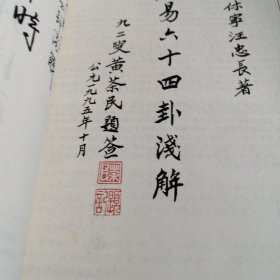 保寧汪忠長著
易六十四卦淺解
九二叟黃荼民題簽
公元一九九五年十月
時